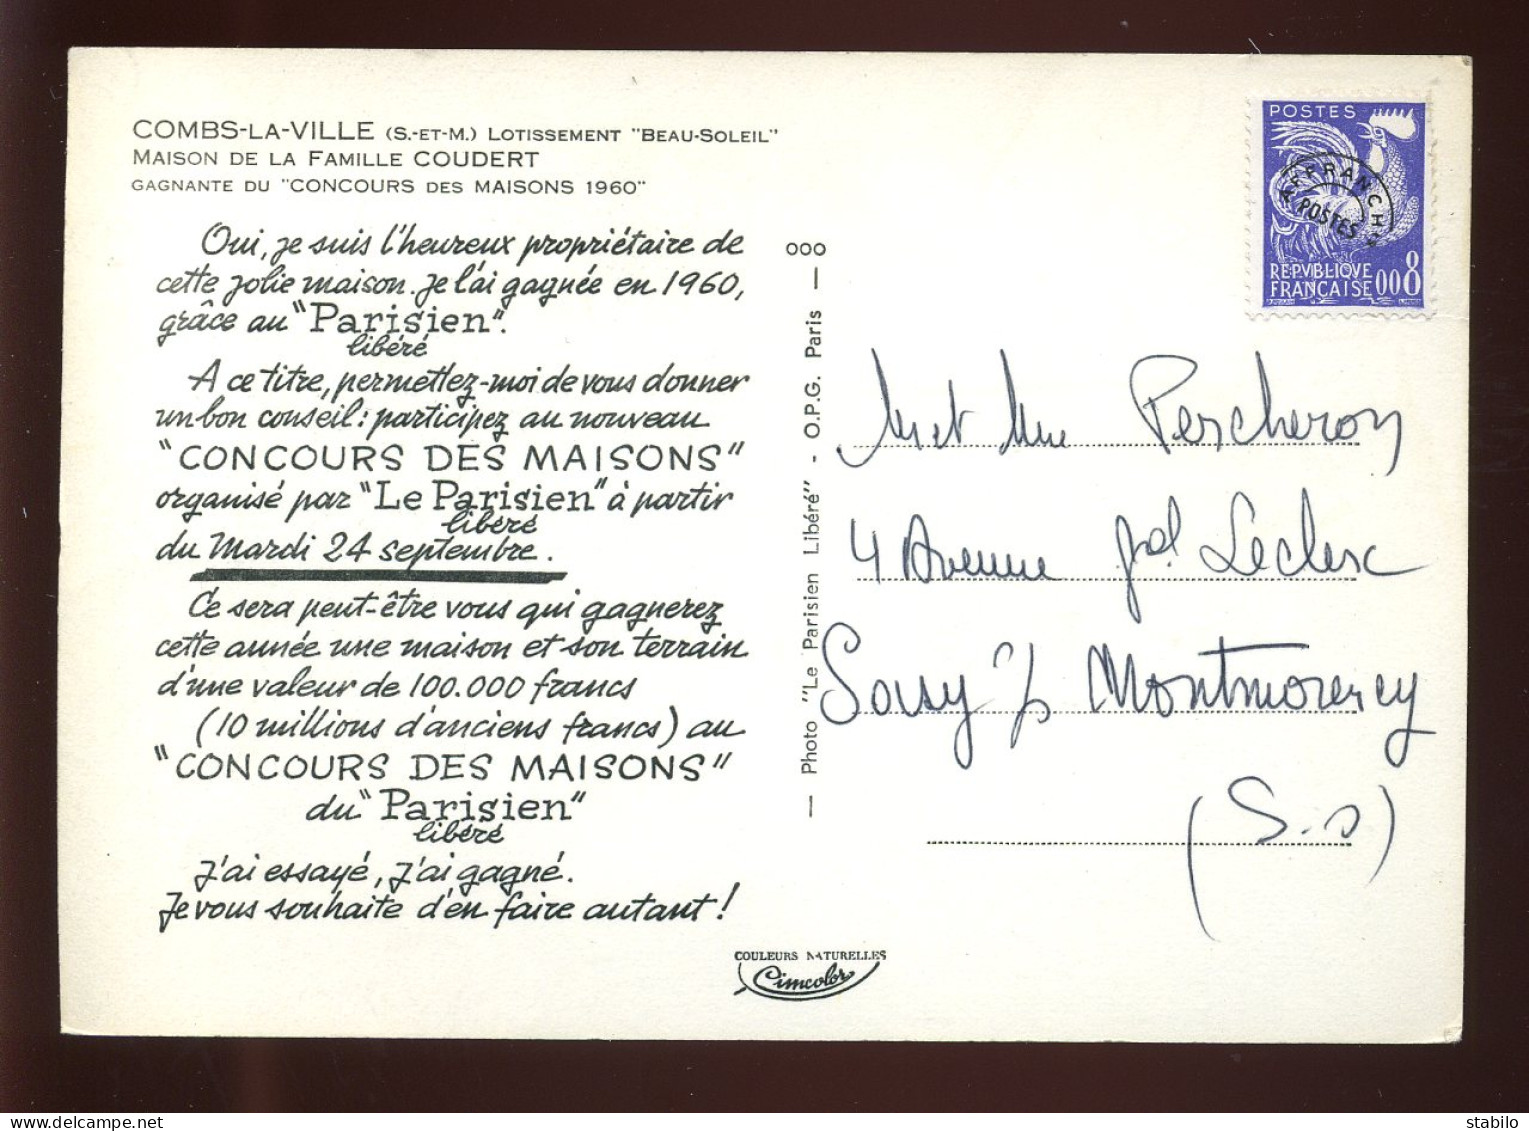 COMBS-LA-VILLE (S.-ET-M.) LOTISSEMENT "BEAU-SOLEIL"
MAISON DE LA FAMILLE COUDERT
GAGNANTE DU "CONCOURS DES MAISONS 1960"
Oui, je suis l'heureux propriétaire de
cette jolie maison. Je l'ai gagnée en 1960,
grâce au "Parisien".
libéré
A ce titre, permettez-moi de vous donner
un bon conseil : participez au nouveau
"CONCOURS DES MAISONS"
organisé par "Le Parisien" à partir
libéré
du Mardi 24 septembre.
Ce sera peut-être vous qui gagnerez
cette année une maison et son terrain
d'une valeur de 100.000 francs
(10 millions d'anciens francs) au
"CONCOURS DES MAISONS"
du "Parisien"
libéré
J'ai essayé, j'ai gagné.
Je vous souhaite d'en faire autant !
COULEURS NATURELLES
Cimcolor
000
— Photo "Le Parisien Libéré" - O.P.G. Paris —
POSTES
AFFRANCHts
POSTES
REPVBLIQVE
FRANÇAISE 008
M et Mme Percheron
4 Avenue gal Leclerc
Soisy s/ Montmorency
(S.-O)
delcampe.net
stabilo